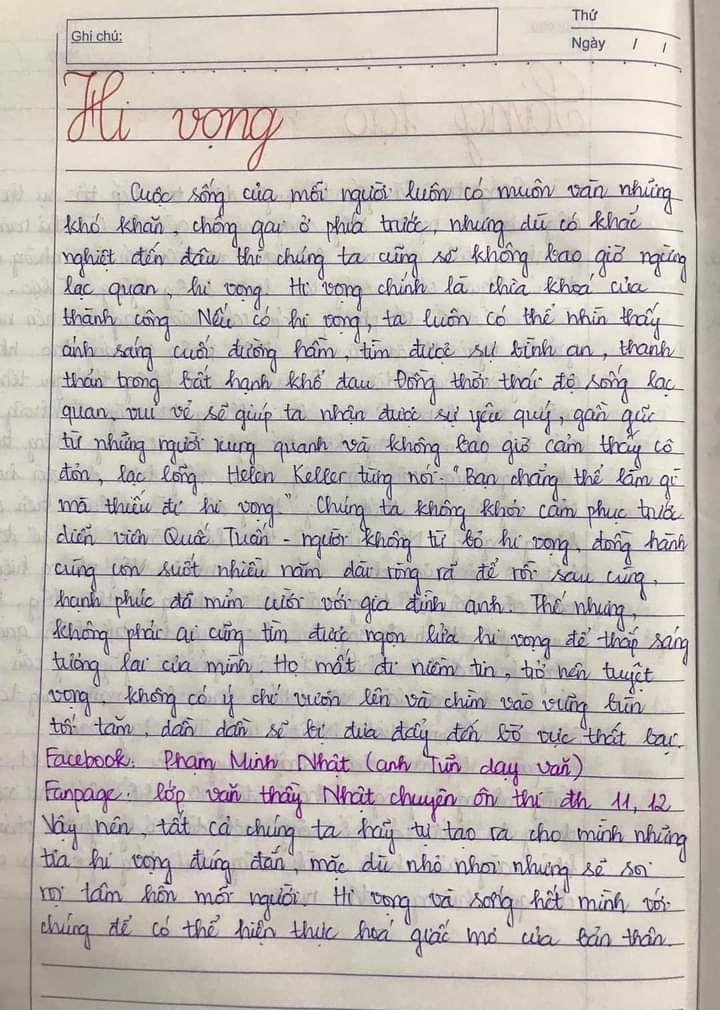 Ghi chú:
Thứ
Ngày / /
Hi vọng
Cuộc sống của mỗi người luôn có muôn vàn những
khó khăn, chông gai ở phía trước, nhưng dù có khắc
nghiệt đến đâu thì chúng ta cũng sẽ không bao giờ ngừng
lạc quan, hi vọng. Hi vọng chính là chìa khoá của
thành công Nếu có hi vọng, ta luôn có thể nhìn thấy
ánh sáng cuối đường hầm, tìm được sự bình an, thanh
thản trong bất hạnh khổ đau Đồng thời thái độ sống lạc
quan, vui vẻ sẽ giúp ta nhận được sự yêu quý, gần gũi
từ những người xung quanh và không bao giờ cảm thấy cô
đơn, lạc lõng. Helen Keller từng nói: "Bạn chẳng thể làm gì
mà thiếu đi hi vọng." Chúng ta không khỏi cảm phục trước
diễn viên Quốc Tuấn - người không từ bỏ hi vọng, đồng hành
cùng con suốt nhiều năm dài ròng rã để rồi sau cùng,
hạnh phúc đã mỉm cười với gia đình anh. Thế nhưng,
không phải ai cũng tìm được ngọn lửa hi vọng để thắp sáng
tương lai của mình. Họ mất đi niềm tin, trở nên tuyệt
vọng, không có ý chí vươn lên và chìm vào vũng bùn
tối tăm, dần dần sẽ bị đưa đẩy đến bờ vực thất bại.
Facebook: Phạm Minh Nhật (anh Tũn dạy văn)
Fanpage: lớp văn thầy Nhật chuyên ôn thi đh 11, 12
Vậy nên, tất cả chúng ta hãy tự tạo ra cho mình những
tia hi vọng đúng đắn, mặc dù nhỏ nhoi nhưng sẽ soi
rọi tâm hồn mỗi người. Hi vọng và sống hết mình với
chúng để có thể hiện thực hoá giấc mơ của bản thân